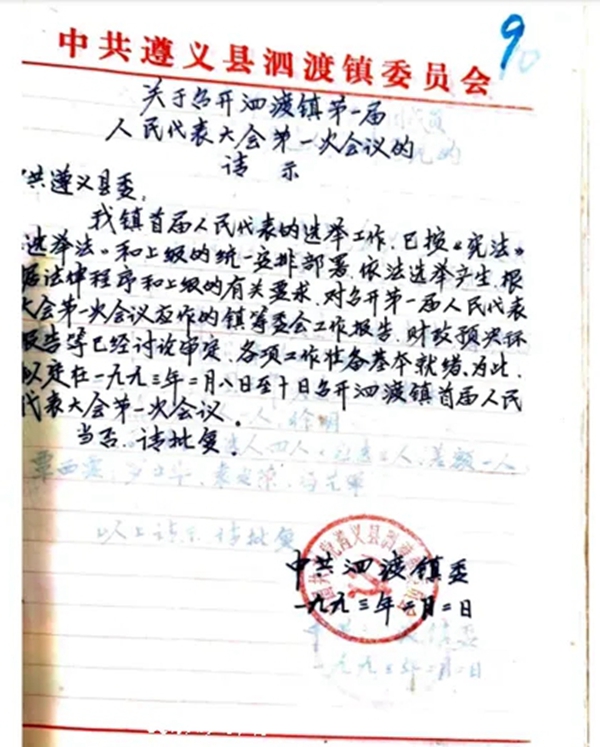 9
中共遵义县泗渡镇委员会
关于召开泗渡镇第一届
人民代表大会第一次会议的
请示
共遵义县委：
我镇首届人民代表的选举工作，已按《宪法》
选举法》和上级的统一安排部署，依法选举产生，根
据法律程序和上级的有关要求，对召开第一届人民代表
大会第一次会议应作的镇筹委会工作报告，财政预决算
报告等已经讨论审定，各项工作准备基本就绪，为此，
拟定在一九九三年二月八日至十日召开泗渡镇首届人民
代表大会第一次会议。
当否，请批复。
以上请示请批复
中共泗渡镇委
一九九三年二月二日